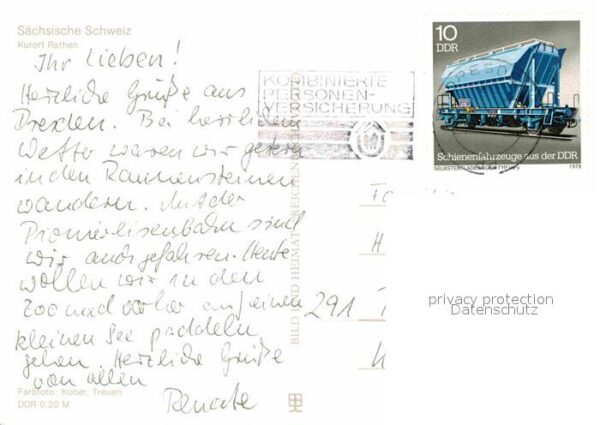 Sächsische Schweiz
Kurort Rathen
Ihr Lieben!
Herzliche Grüße aus
Dresden. Bei herrlichem
Wetter waren wir gestern
in den Rauensteinen
wandern. Mit der
Pioniereisenbahn sind
wir auch gefahren. Heute
wollen wir in den
Zoo und vorher auf einen
kleinen See paddeln
gehen. Herzliche Grüße
von allen
Renate
Farbfoto: Kober, Treuen
DDR 0,20 M
BILD UND HEIMAT REICHENBACH
KOMBINIERTE
PERSONEN-
VERSICHERUNG
10
DDR
Schienenfahrzeuge aus der DDR
1979
291
privacy protection
Datenschutz